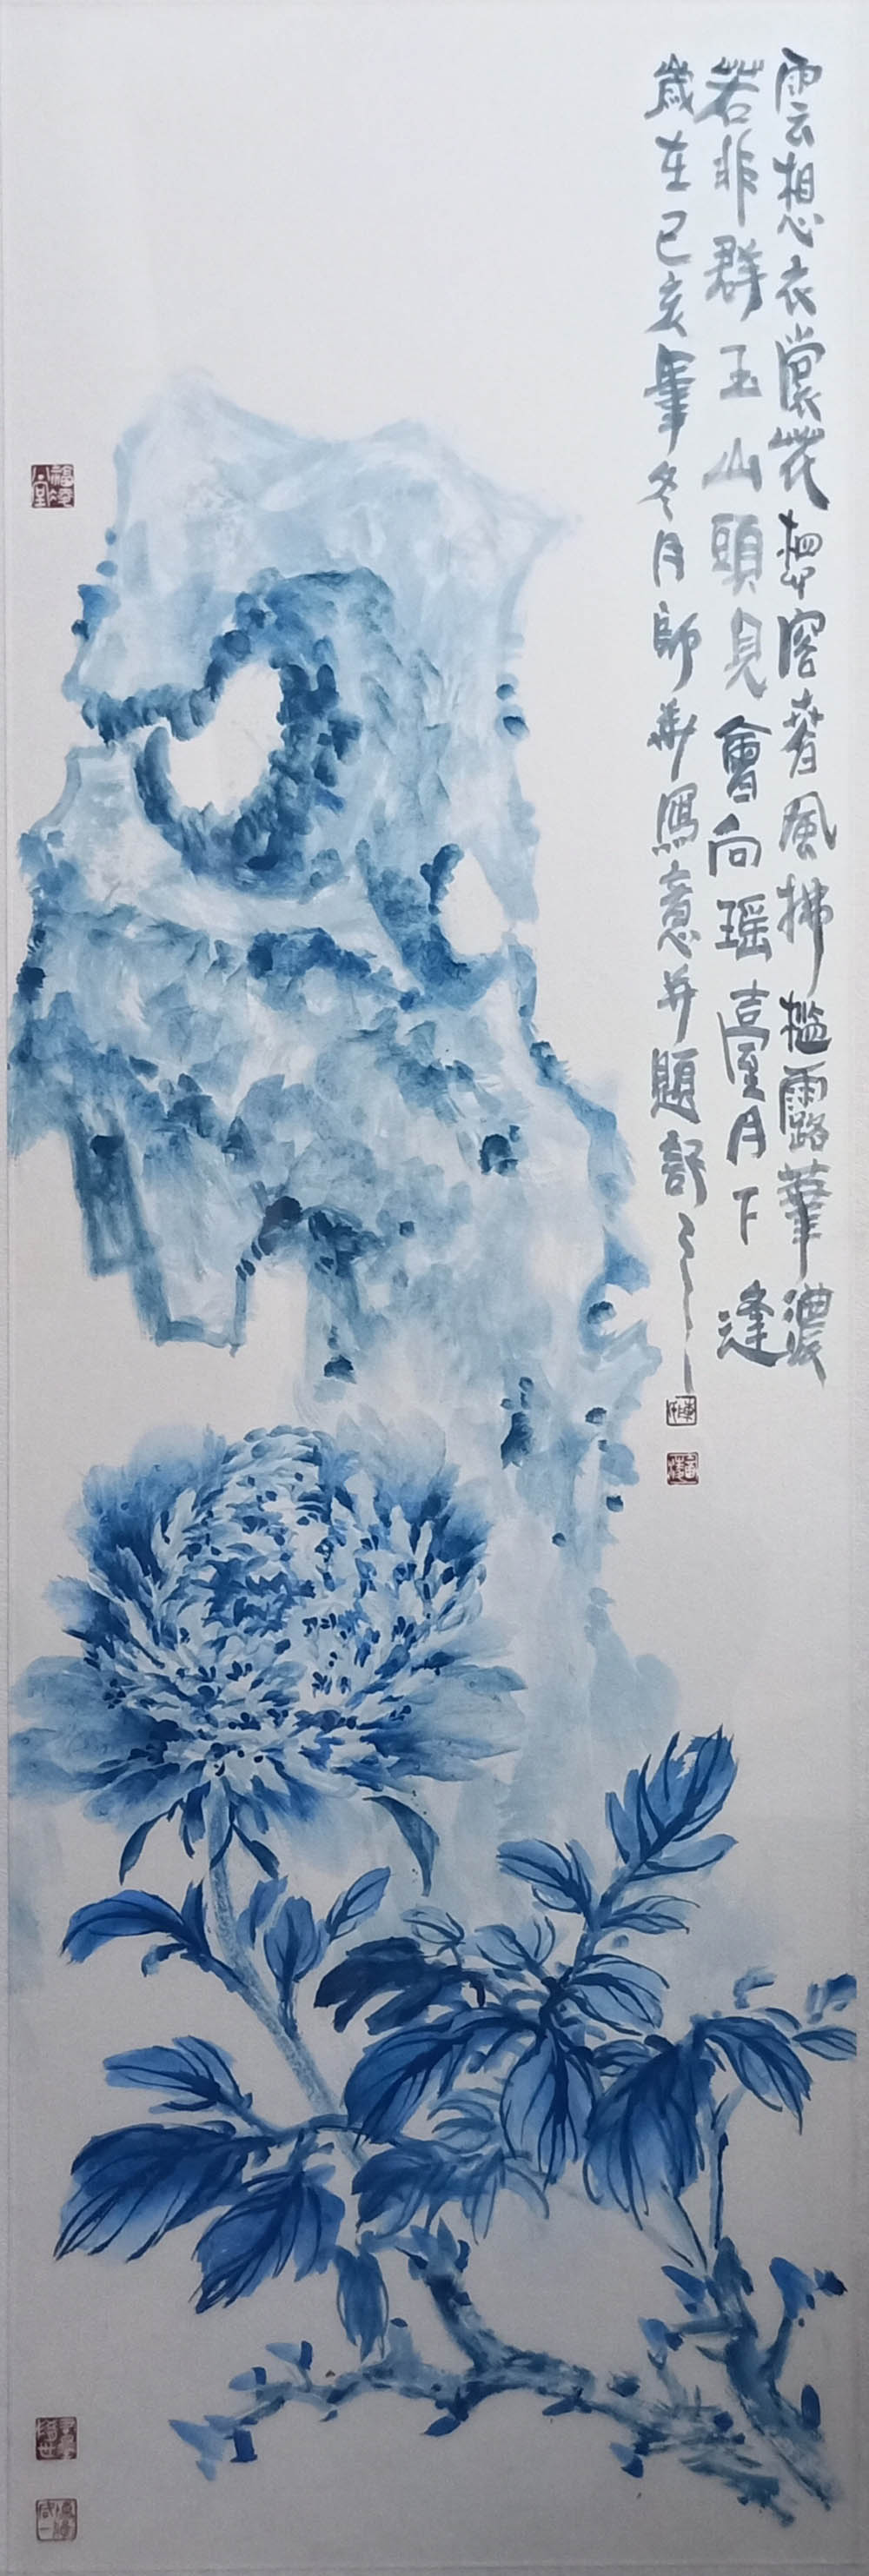 雲想衣裳花想容春風拂檻露華濃
若非群玉山頭見會向瑶臺月下逢
歲在己亥年冬月師寫意并題